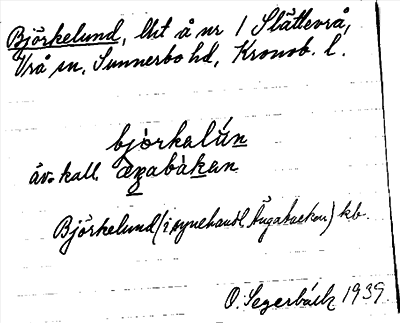 Björkelund, lht å nr 1 Slättevrå,
Vrå sn, Sunnerbo hd, Kronob. l.
bjórkalún
äv. kall. æӡabàkan
Björkelund (i synehandl. Ängabacken) kb.
O. Segerbäck 1939